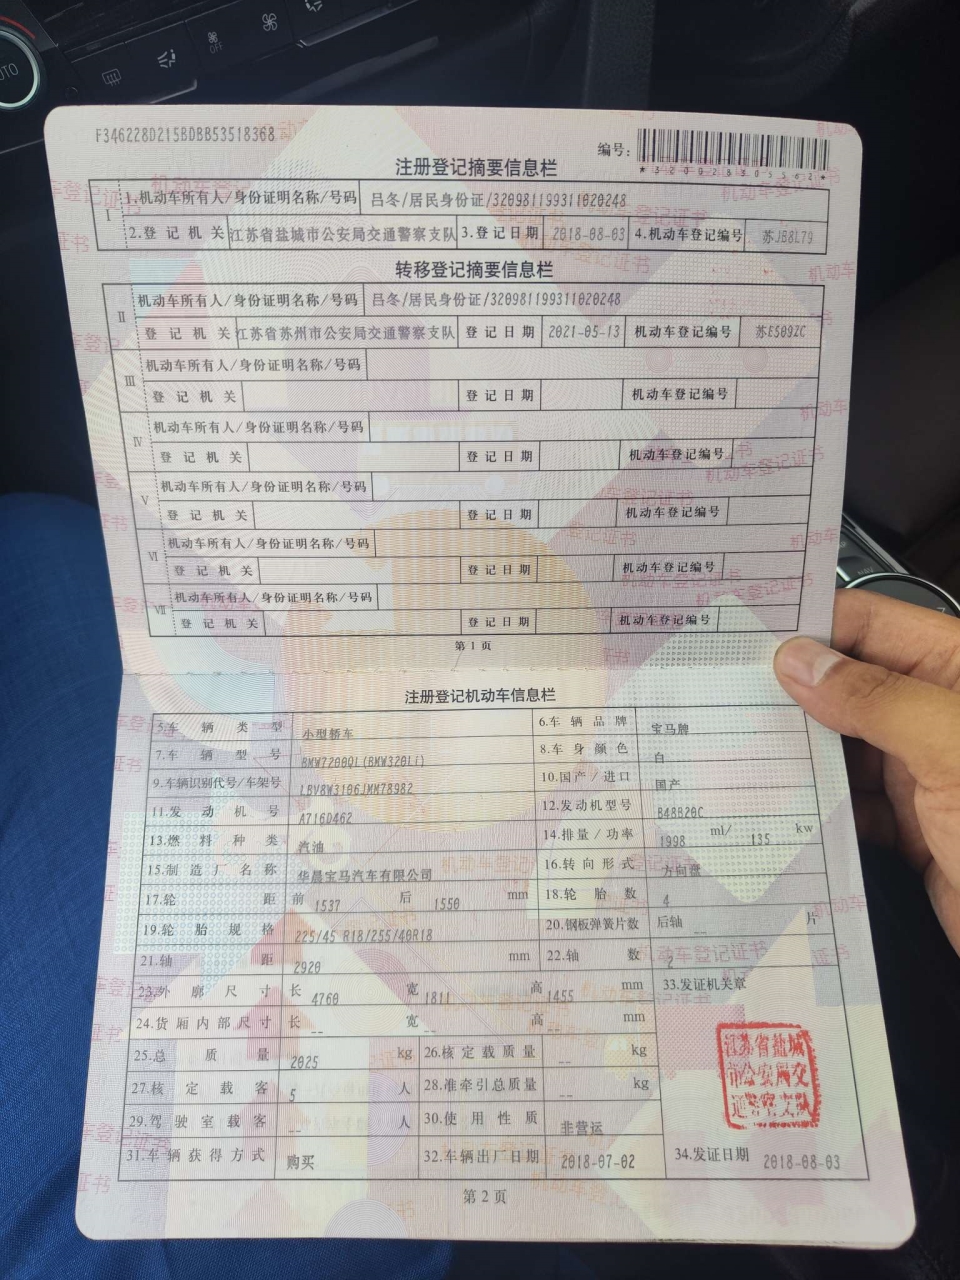 F346228D215BDBB53518368
编号：
*320028305562*
注册登记摘要信息栏
I 1.机动车所有人/身份证明名称/号码 吕冬/居民身份证/320981199311020248
2.登记机关 江苏省盐城市公安局交通警察支队 3.登记日期 2018-08-03 4.机动车登记编号 苏JB8L79
转移登记摘要信息栏
II 机动车所有人/身份证明名称/号码 吕冬/居民身份证/320981199311020248
登记机关 江苏省苏州市公安局交通警察支队 登记日期 2021-05-13 机动车登记编号 苏E509ZC
III 机动车所有人/身份证明名称/号码
登记机关 登记日期 机动车登记编号
IV 机动车所有人/身份证明名称/号码
登记机关 登记日期 机动车登记编号
V 机动车所有人/身份证明名称/号码
登记机关 登记日期 机动车登记编号
VI 机动车所有人/身份证明名称/号码
登记机关 登记日期 机动车登记编号
VII 机动车所有人/身份证明名称/号码
登记机关 登记日期 机动车登记编号
第1页
注册登记机动车信息栏
5.车辆类型 小型轿车 6.车辆品牌 宝马牌
7.车辆型号 BMW7200QL(BMW320Li) 8.车身颜色 白
9.车辆识别代号/车架号 LBV8W3106JMM78982 10.国产/进口 国产
11.发动机号 A716D462 12.发动机型号 B48B20C
13.燃料种类 汽油 14.排量/功率 1998 ml/ 135 kw
15.制造厂名称 华晨宝马汽车有限公司 16.转向形式 方向盘
17.轮距 前 1537 后 1550 mm 18.轮胎数 4
19.轮胎规格 225/45 R18/255/40R18 20.钢板弹簧片数 后轴 -- 片
21.轴距 2920 mm 22.轴数 2
23.外廓尺寸 长 4760 宽 1811 高 1455 mm 33.发证机关章
24.货厢内部尺寸 长 -- 宽 -- 高 -- mm
25.总质量 2025 kg 26.核定载质量 -- kg
27.核定载客 5 人 28.准牵引总质量 -- kg
29.驾驶室载客 -- 人 30.使用性质 非营运
31.车辆获得方式 购买 32.车辆出厂日期 2018-07-02 34.发证日期 2018-08-03
江苏省盐城
市公安局交
通警察支队
第2页